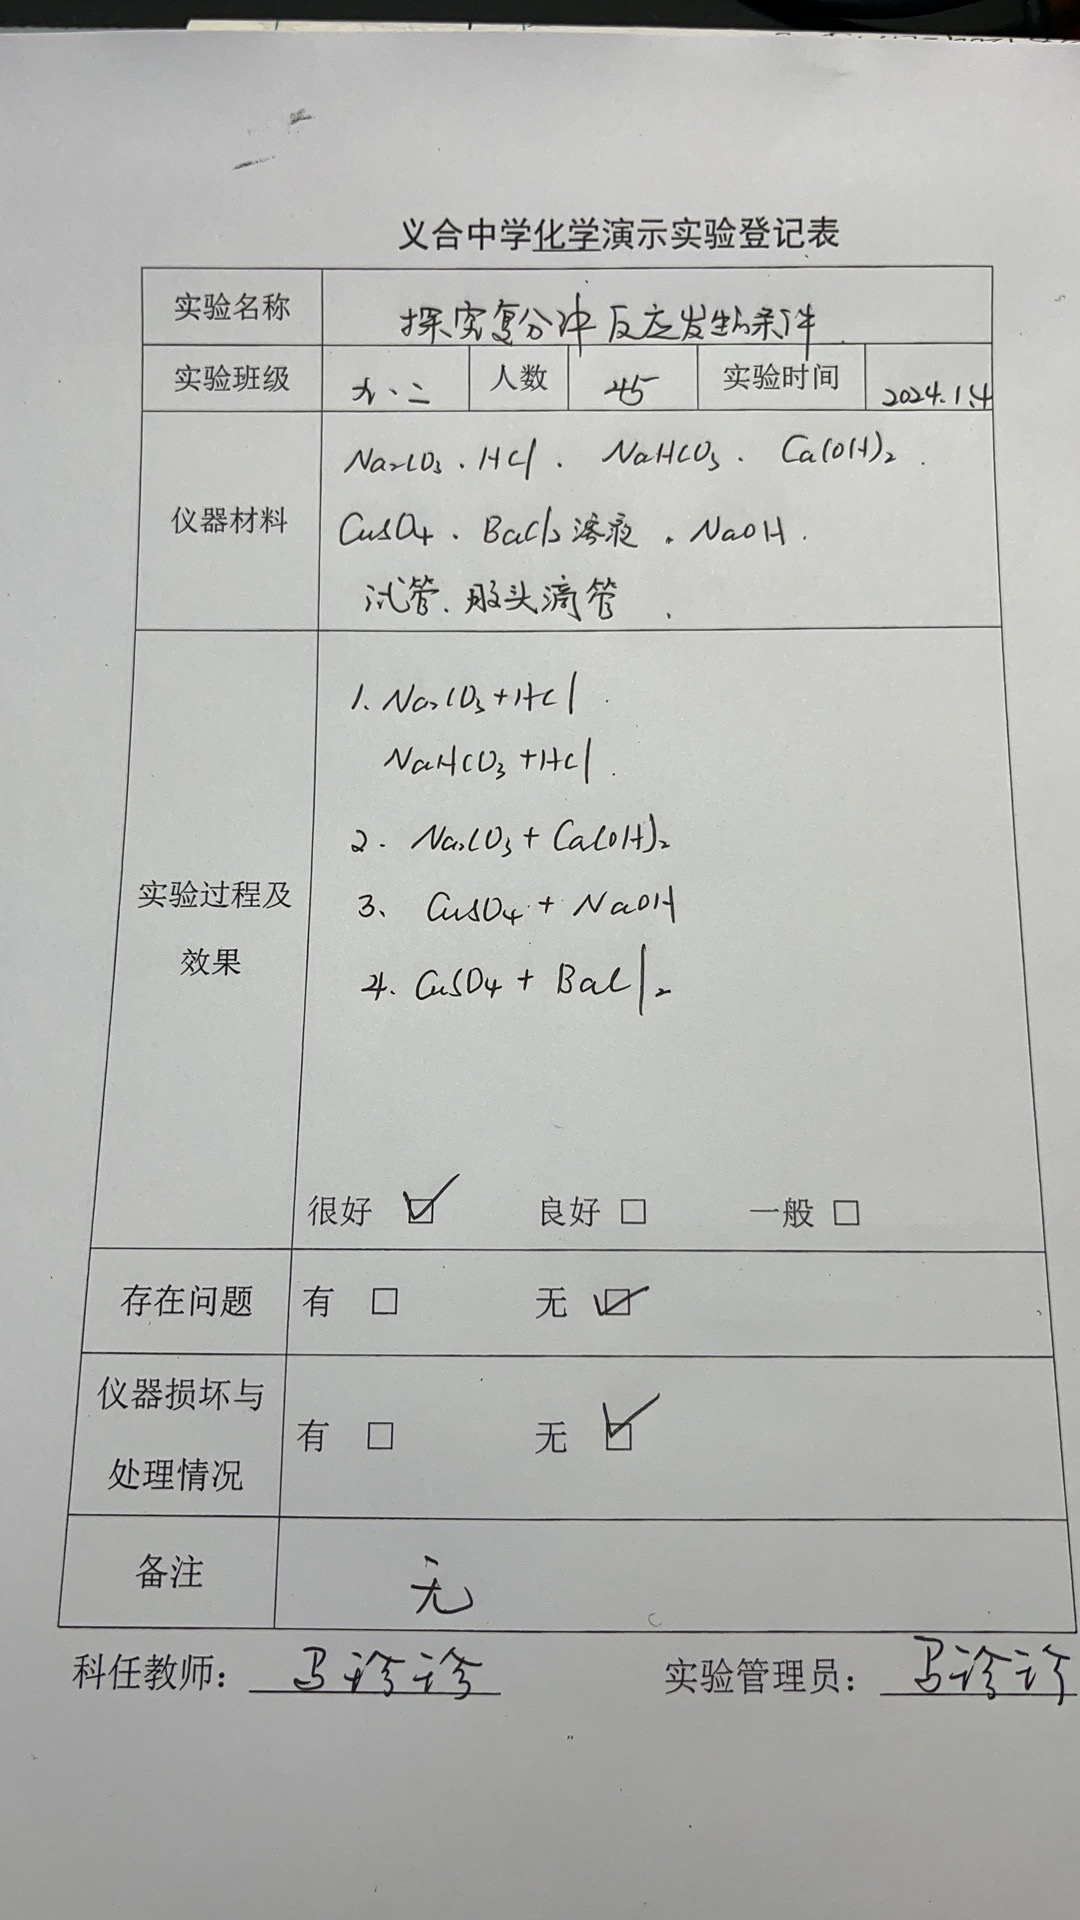 义合中学化学演示实验登记表
实验名称 探究复分冲反应发生的条件
实验班级 九、二 人数 45 实验时间 2024.1.4
仪器材料
Na₂CO₃、HCl、NaHCO₃、Ca(OH)₂、
CuSO₄、BaCl₂溶液、NaOH.
试管、胶头滴管.
实验过程及
效果
1. Na₂CO₃+HCl.
NaHCO₃+HCl.
2. Na₂CO₃+Ca(OH)₂
3、CuSO₄+NaOH
4. CuSO₄+BaCl₂
很好 ☑ 良好 □ 一般 □
存在问题 有 □ 无 ☑
仪器损坏与
处理情况
有 □ 无 ☑
备注 无
科任教师：马诊诊 实验管理员：马诊诊